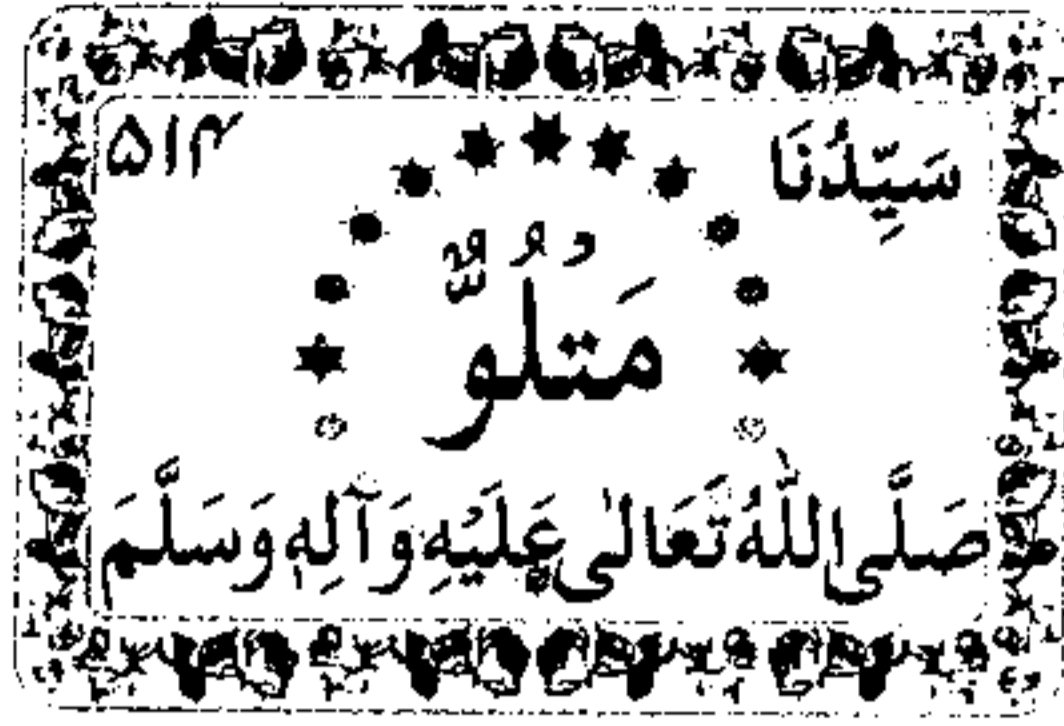 سَيِّدُنَا ۵۱۴
مَتْلُوٌّ
صَلَّى اللّٰهُ تَعَالٰى عَلَيْهِ وَآلِهٖ وَسَلَّمَ